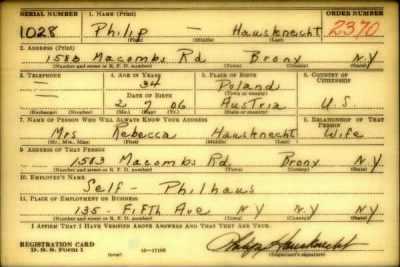 SERIAL NUMBER 1. NAME (Print) ORDER NUMBER
1028 Philip — Hausknecht 2370
(First) (Middle) (Last)
2. ADDRESS (Print)
1583 Macombs Rd Bronx N.Y
(Number and street or R. F. D. number) (Town) (County) (State)
3. TELEPHONE 4. AGE IN YEARS 5. PLACE OF BIRTH 6. COUNTRY OF CITIZENSHIP
— 34 Poland
DATE OF BIRTH (Town or county)
— 2 7 06 Austria U.S.
(Exchange) (Number) (Mo.) (Day) (Yr.) (State or country)
7. NAME OF PERSON WHO WILL ALWAYS KNOW YOUR ADDRESS 8. RELATIONSHIP OF THAT PERSON
Mrs Rebecca Hausknecht Wife
(Mr., Mrs., Miss) (First) (Middle) (Last)
9. ADDRESS OF THAT PERSON
1583 Macombs Rd Bronx N.Y
(Number and street or R. F. D. number) (Town) (County) (State)
10. EMPLOYER'S NAME
Self - Philhaus
11. PLACE OF EMPLOYMENT OR BUSINESS
135 - Fifth Ave N Y N Y N Y
(Number and street or R. F. D. number) (Town) (County) (State)
I AFFIRM THAT I HAVE VERIFIED ABOVE ANSWERS AND THAT THEY ARE TRUE.
REGISTRATION CARD
D. S. S. FORM 1 (over) 16—17105 Philip Hausknecht
(Registrant's signature)